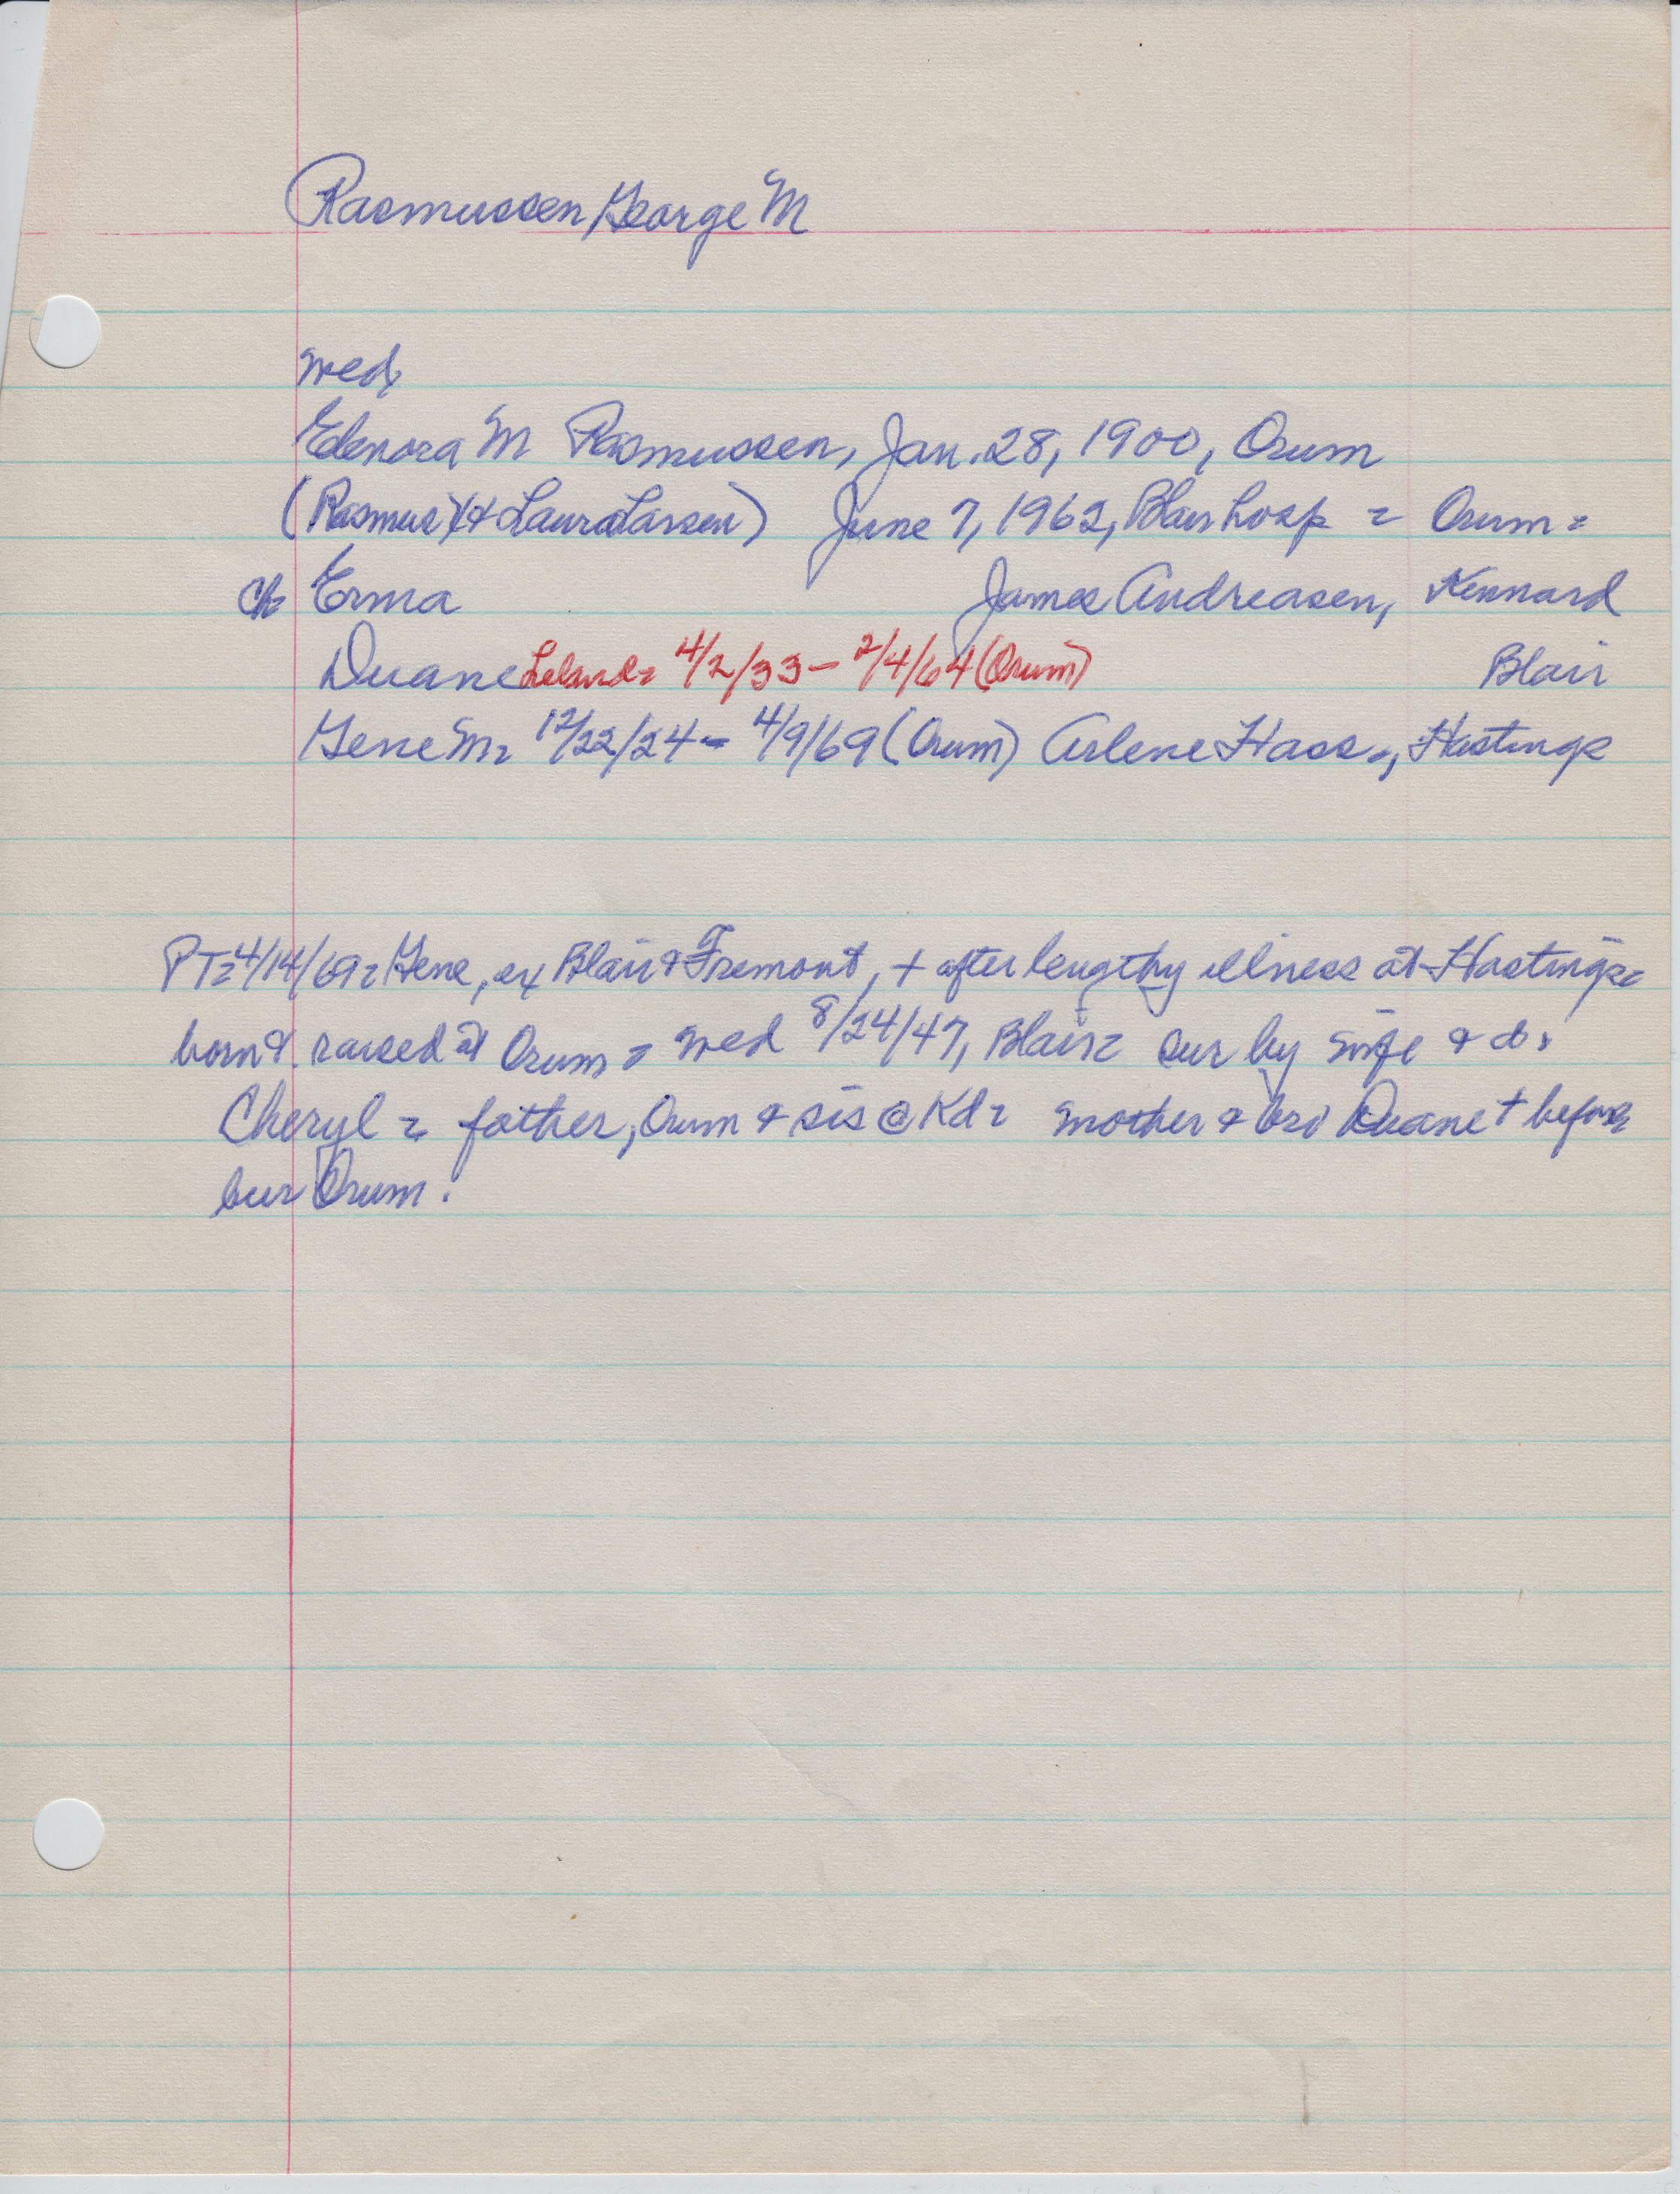 Rasmussen, George M
wed,
Elenora M Rasmussen, Jan. 28, 1900, Orum
(Rasmus) (+ Laura Larsen) June 7, 1962, Blair hosp = Orum =
ch Erma James Andreasen, Kennard
Duane Leland = 4/2/33 - 2/4/64 (Orum) Blair
Gene M = 12/22/24 - 4/9/69 (Orum) Arlene Hass, Hastings
PT = 4/14/69 = Gene, ex Blair & Fremont, + after lengthy illness at Hastings =
born & raised at Orum = wed 8/24/47, Blair = sur by wife & d.
Cheryl = father, Orum & sis @ Kd = mother & bro Duane + before
bur Orum.